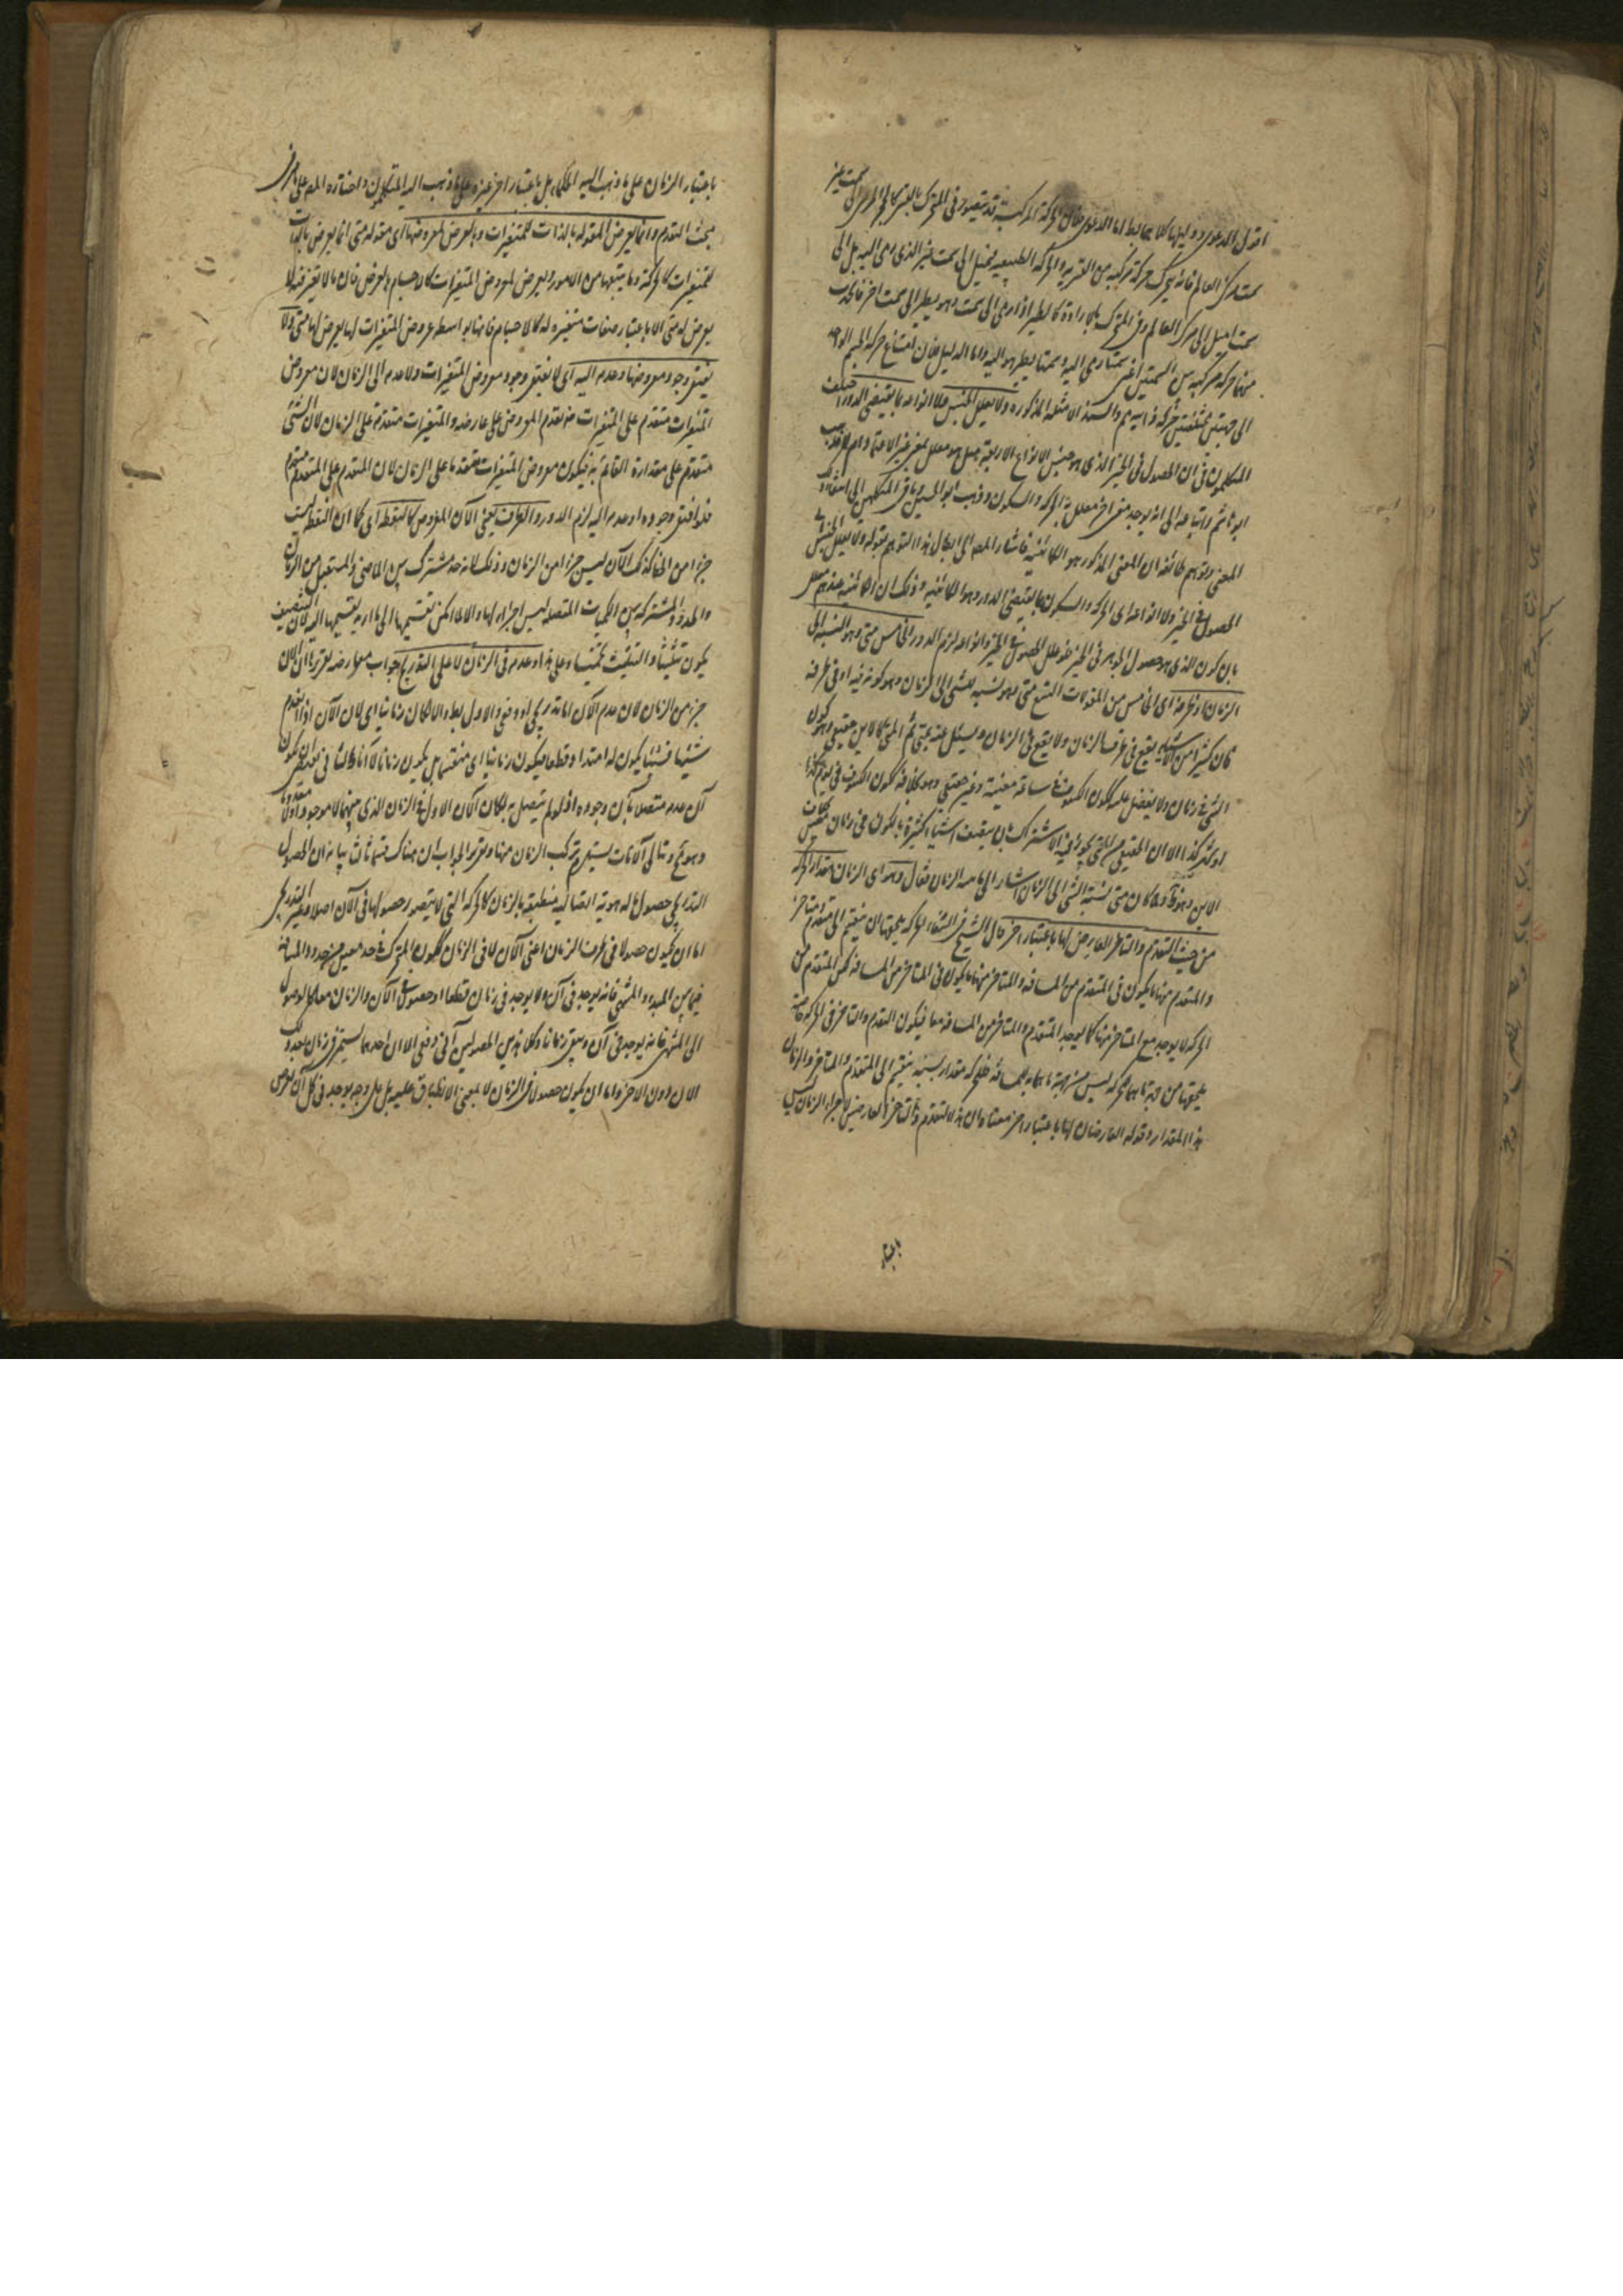 اقول الدعوى ودليلها كلاهما باطل اما الدعوى فلان الحركة المركبة قد يتصور فى المتحرك بالقسر كالحجر المرمى الى سمت غير
سمت مركز العالم فانه يتحرك حركة مركبة من القسرية والحركة الطبيعية فيميل الى سمت غير الذى رمى اليه بل الى
سمت اميل الى مركز العالم وفى المتحرك بالارادة كالطير اذا رمى الى سمت وهو يطير الى سمت اخر فانه يحدث
منهما حركة مركبة بين السمتين اعنى سمتا رمى اليه وسمتا يطير هو اليه واما الدليل فلان امتناع حركة الجسم الواحد
الى جهتين مختلفتين حركة ذاتية مسلم والسند الامثلة المذكورة ولا يعلل الجنس ولا انواعه بما يقتضى الدور اختلف
المتكلمون فى ان الحصول فى الحيز الذى هو جنس الانواع الاربعة هل هو معلل بمعنى غير الاعتماد ام لا فذهب
ابو هاشم واتباعه الى انه يوجد معنى اخر معلل به الحركة والسكون وذهب ابو الحسين وباقى المتكلمين الى انتفاء
المعنى وتوهم طائفة ان المعنى المذكور هو الكائنية فاشار المصم الى ابطال هذا التوهم بقوله ولا يعلل الجنس اى
الحصول فى الحيز ولا انواعه اى الحركة والسكون بما يقتضى الدور وهو الكائنية وذلك ان الكائنية عندهم معلل
بالكون الذى هو حصول الجوهر فى الحيز فلو علل الحصول فى الحيز وانواعه لزم الدور الخامس متى وهو النسبة الى
الزمان او طرفه اى الخامس من المقولات التسع متى وهو نسبة للشئ الى الزمان وهو كونه فيه او فى طرفه
فان كثيرا من الاشياء يقع فى طرف الزمان ولا يقع فى الزمان ويسئل عنه بمتى ثم المتى كالاين حقيقى وهو كون
الشئ فى زمان ولا يفضل عليه ككون الكسوف فى ساعة معينة وغير حقيقى وهو بخلافه ككون الكسوف فى يوم كذا
او شهر كذا الا ان الحقيقى من المتى يجوز فيه الاشتراك بان يتصف اشياء كثيرة بالكون فى زمان معين بخلاف
الاين وهو ظ ولما كان متى نسبة الشئ الى الزمان اشار الى ماهية الزمان فقال وهو اى الزمان مقدار الحركة
من حيث التقدم والتاخر العارض لها باعتبار اخر قال الشيخ فى الشفاء الحركة يلحقها ان ينقسم الى متقدم ومتاخر
والمتقدم منها ما يكون فى المتقدم من المسافة والمتاخر منها ما يكون فى المتاخر من المسافة لكن المتقدم من
الحركة لا يوجد مع المتاخر منها كما يوجد المتقدم والمتاخر من المسافة معا فيكون للتقدم والتاخر فى الحركة خاصة
يلحقها من جهة ما هما للحركة ليس من جهة ما هما للمسافة فللحركة مقدار بسببه ينقسم الى المتقدم والمتاخر والزمان
هذا المقدار وقوله العارضان لها باعتبار اخر معناه ان هذا التقدم والتاخر العارضين لاجزاء الزمان ليس
باعتبار
باعتبار الزمان على ما ذهب اليه الحكماء بل باعتبار اخر غيره على ما ذهب اليه المتكلمون واختاره المصم على ما مر فى
مبحث التقدم وانما يعرض المقولة بالذات للمتغيرات وبالعرض لمعروضها اى مقولة متى انما يعرض بالذات
للمتغيرات كالحركة وما يتبعها من الامور ويعرض لمعروض المتغيرات كالاجسام بالعرض فان ما لا تغير فيه لا
يعرض له متى الا باعتبار صفات متغيرة له كالاجسام فانها بواسطة عروض المتغيرات لها يعرض لها متى ولا
يفتقر وجود معروضها وعدمه اليه اى لا يفتقر وجود معروض المتغيرات ولا عدمه الى الزمان لان معروض
المتغيرات متقدم على المتغيرات ضرورة تقدم المعروض على عارضه والمتغيرات متقدمة على الزمان لان الشئ
متقدم على مقداره القائم به فيكون معروض المتغيرات متقدما على الزمان لان المتقدم على المتقدم متقدم
فلو افتقر وجوده او عدمه اليه لزم الدور والطرف يعنى الآن المفروض كالنقطة اى كما ان النقطة ليست
جزءا من الخط كذلك الآن ليس جزءا من الزمان وذلك لانه حد مشترك بين الماضى والمستقبل من الزمان
والحدود المشتركة بين الكميات المتصلة ليس اجزاء لها والا لما امكن تقسيمها الى ما اريد تقسيمها اليه فان التنصيف
يكون تثليثا والتثليث تخميسا وعلى هذا وعدمه فى الزمان لا على التدريج جواب معارضة تقريرها ان الآن
جزء من الزمان لان عدم الآن اما تدريجى او دفعى والاول بط والا لكان زمانيا اى لان الآن اذا انعدم
شيئا فشيئا يكون له امتداد قطعا فيكون زمانيا اى منقسما بل يكون زمانا لا آنا والثانى يقتضى ان يكون
آن عدمه متصلا بآن وجوده اذ لو لم يتصل به لكان الآن الاول فى الزمان الذى بينهما لا موجودا ولا معدوما
وهو مح وتتالى الآنات يستلزم تركب الزمان منها وتقرير الجواب ان هناك قسما ثالثا بيانه ان الحصول
التدريجى حصول ماله هوية اتصالية منطبقة بالزمان كالحركة التى لا يتصور حصولها فى الآن اصلا وغير التدريجى
اما ان يكون حصولا فى طرف الزمان اعنى الآن لا فى الزمان ككون المتحرك فى حد معين من حدود المسافة
فيما بين المبدء والمنتهى فانه يوجد فى آن ولا يوجد فى زمان قطعا او حصولا فى الآن والزمان معا كالوصول
الى المنتهى فانه يوجد فى آن ويبقى زمانا وكلا هذين الحصولين آنى دفعى الا ان احدهما يستمر فى زمان بعد ذلك
الآن دون الاخر واما ان يكون حصولا فى الزمان لا بمعنى الانطباق عليه بل على وجه يوجد فى كل آن يفرض